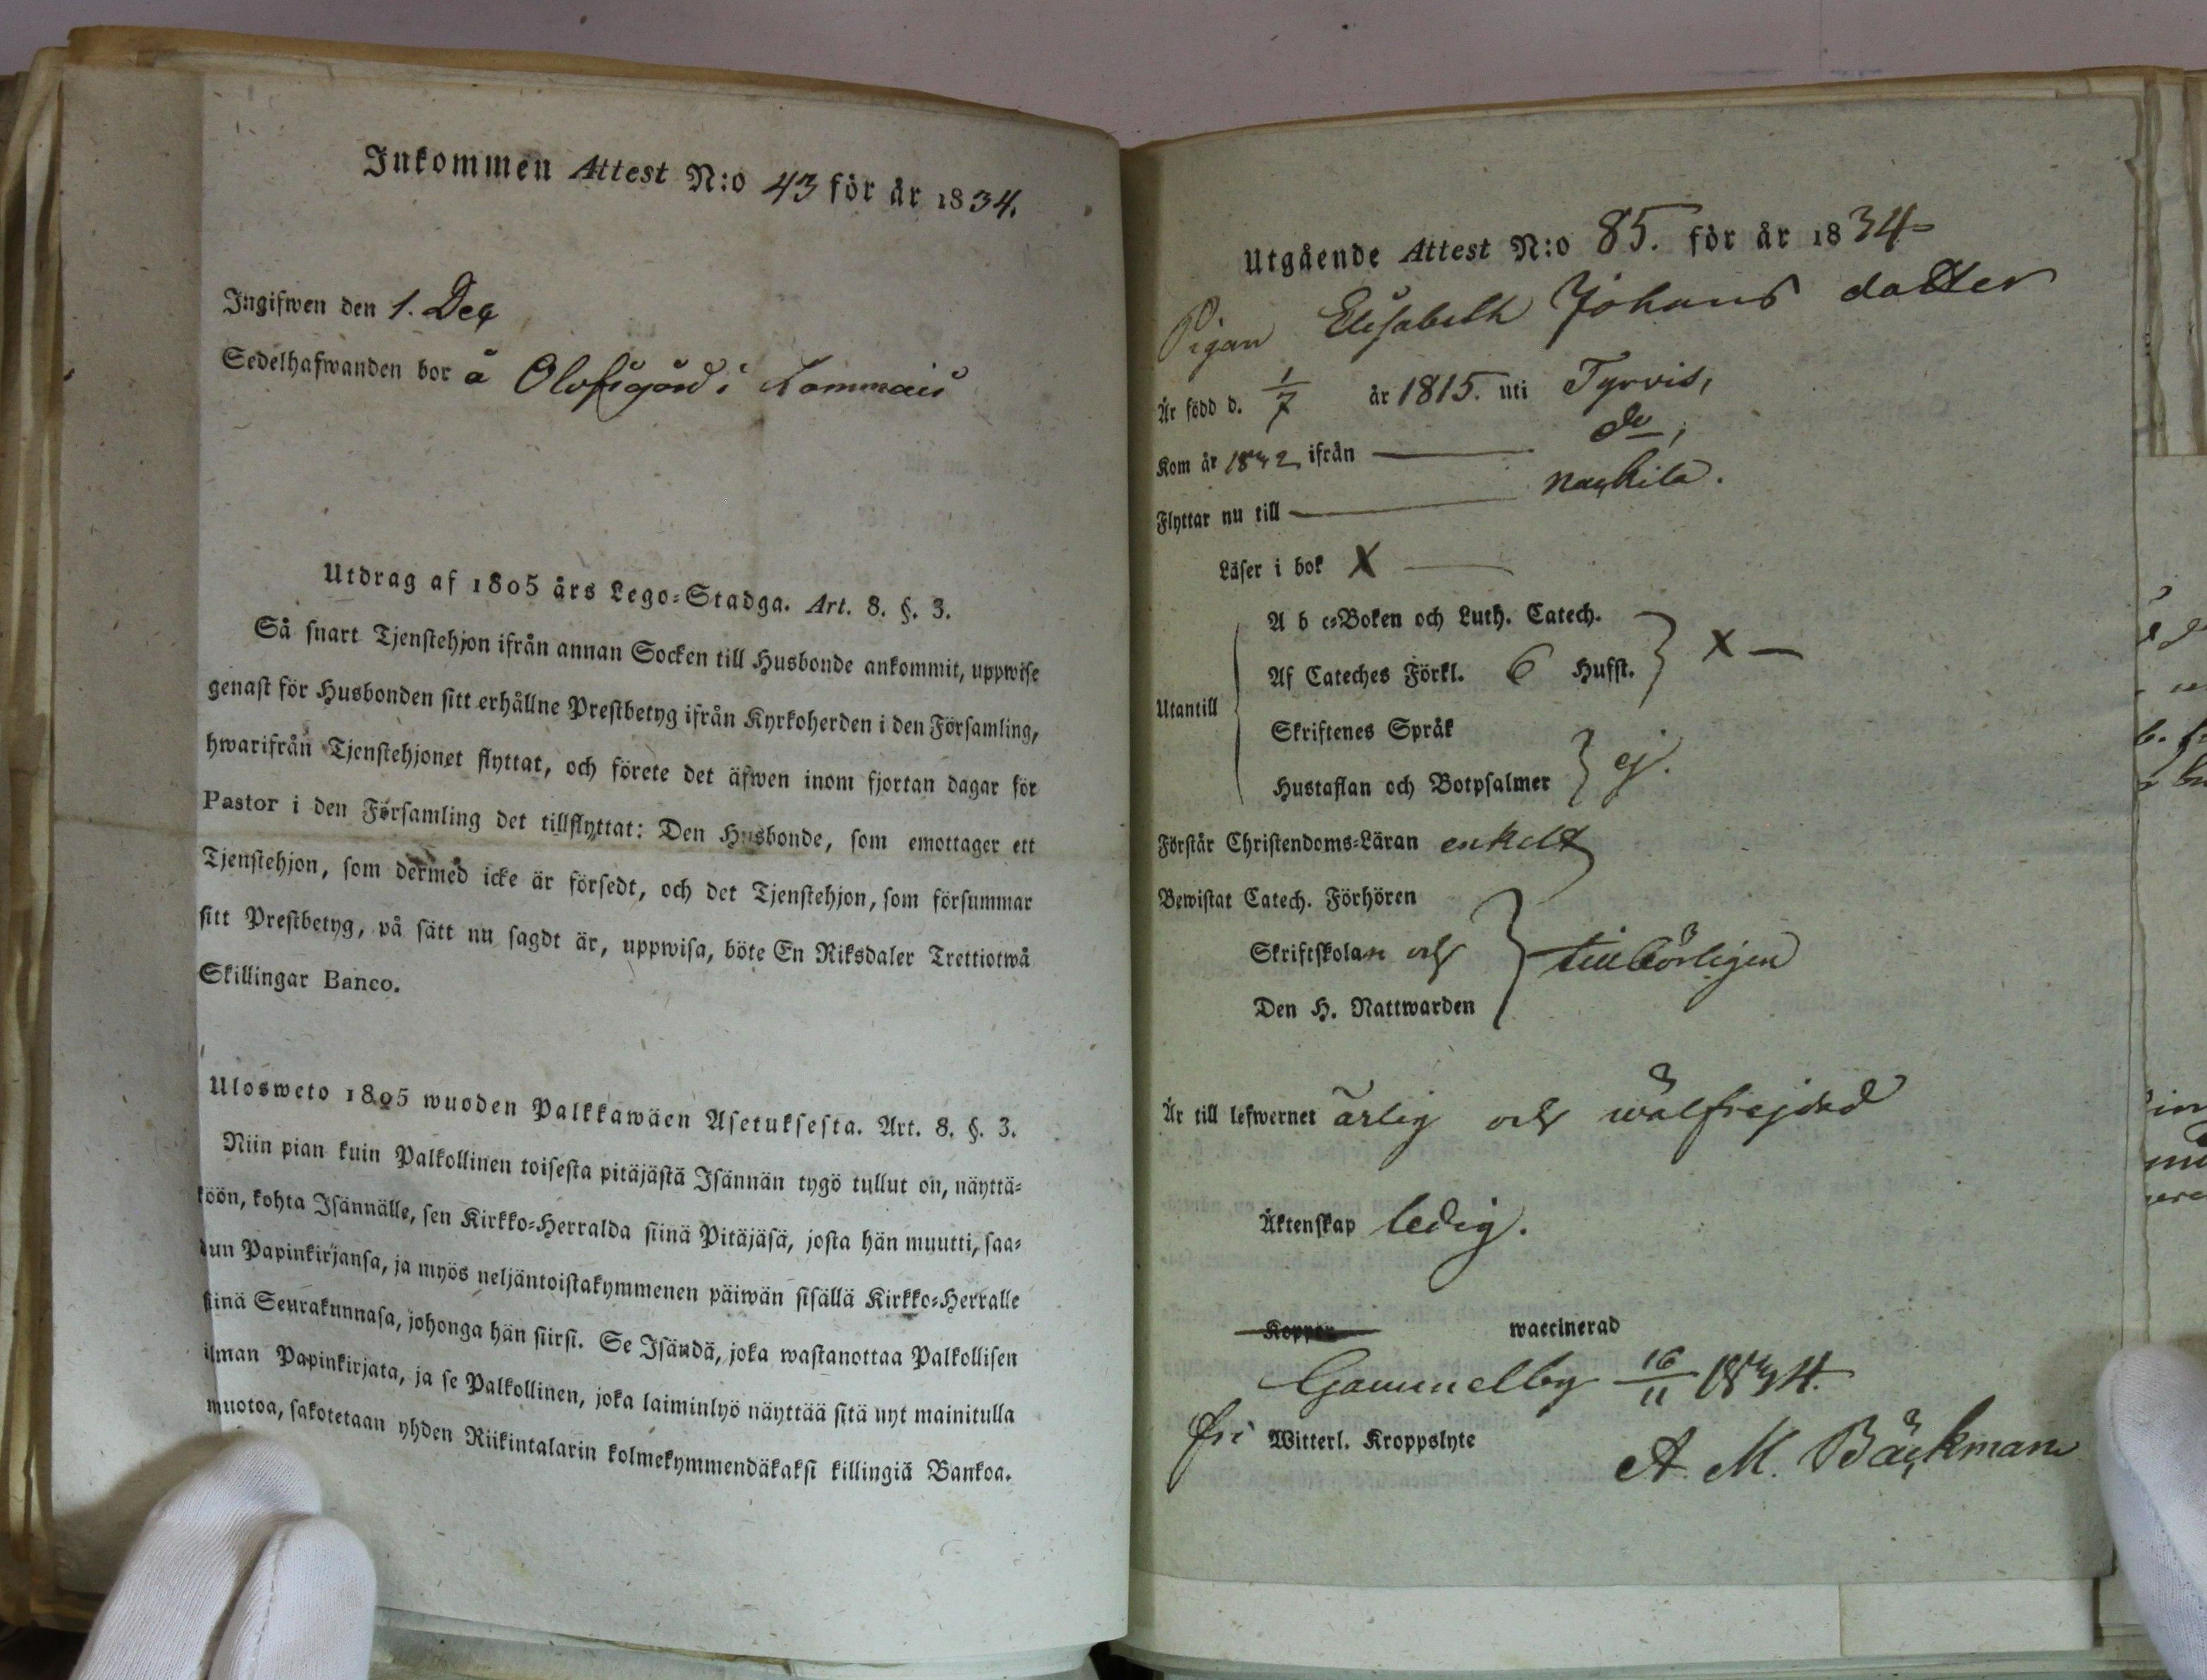 Inkommen Attest N:o 43 för år 1834.
Ingifwen den 1. Dec
Sedelhafwanden bor å Olofsgård i Lammais
Utdrag af 1805 års Lego-Stadga. Art. 8. §. 3.
Så snart Tjenstehjon ifrån annan Socken till Husbonde ankommit, uppwise
genast för Husbonden sitt erhållne Prestbetyg ifrån Kyrkoherden i den Församling,
hwarifrån Tjenstehjonet flyttat, och förete det äfwen inom fjortan dagar för
Pastor i den Församling det tillflyttat: Den Husbonde, som emottager ett
Tjenstehjon, som dermed icke är försedt, och det Tjenstehjon, som försummar
sitt Prestbetyg, på sätt nu sagdt är, uppwisa, böte En Riksdaler Trettiotwå
Skillingar Banco.
Ulosweto 1805 wuoden Palkkawäen Asetuksesta. Art. 8. §. 3.
Niin pian kuin Palkollinen toisesta pitäjästä Isännän tygö tullut on, näyttä-
köön, kohta Isännälle, sen Kirkko-Herralda siinä Pitäjäsä, josta hän muutti, saa-
dun Papinkirjansa, ja myös neljäntoistakymmenen päiwän sisällä Kirkko-Herralle
siinä Seurakunnasa, johonga hän siirsi. Se Isändä, joka wastanottaa Palkollisen
ilman Papinkirjata, ja se Palkollinen, joka laiminlyö näyttää sitä nyt mainitulla
muotoa, sakotetaan yhden Riikintalarin kolmekymmendäkaksi killingiä Bankoa.
Utgående Attest N:o 85. för år 1834
Pigan Elisabeth Johans dotter
Är född d. 1/7 år 1815. uti Tyrvis,
Kom år 1832 ifrån do,
Flyttar nu till Nackila.
Läser i bok X
A b c-Boken och Luth. Catech.
Af Cateches Förkl. 6 Hufst. X
Utantill
Skriftenes Språk
Hustaflan och Botpsalmer ej.
Förstår Christendoms-Läran enkelt
Bewistat Catech. Förhören
Skriftskolan och tillbörligen
Den H. Nattwarden
Är till lefwernet ärlig och wälfrejdad
Äktenskap ledig.
Koppor waccinerad
Gammelby 16/11 1834.
fri Witterl. Kroppslyte
A. M. Bäckman